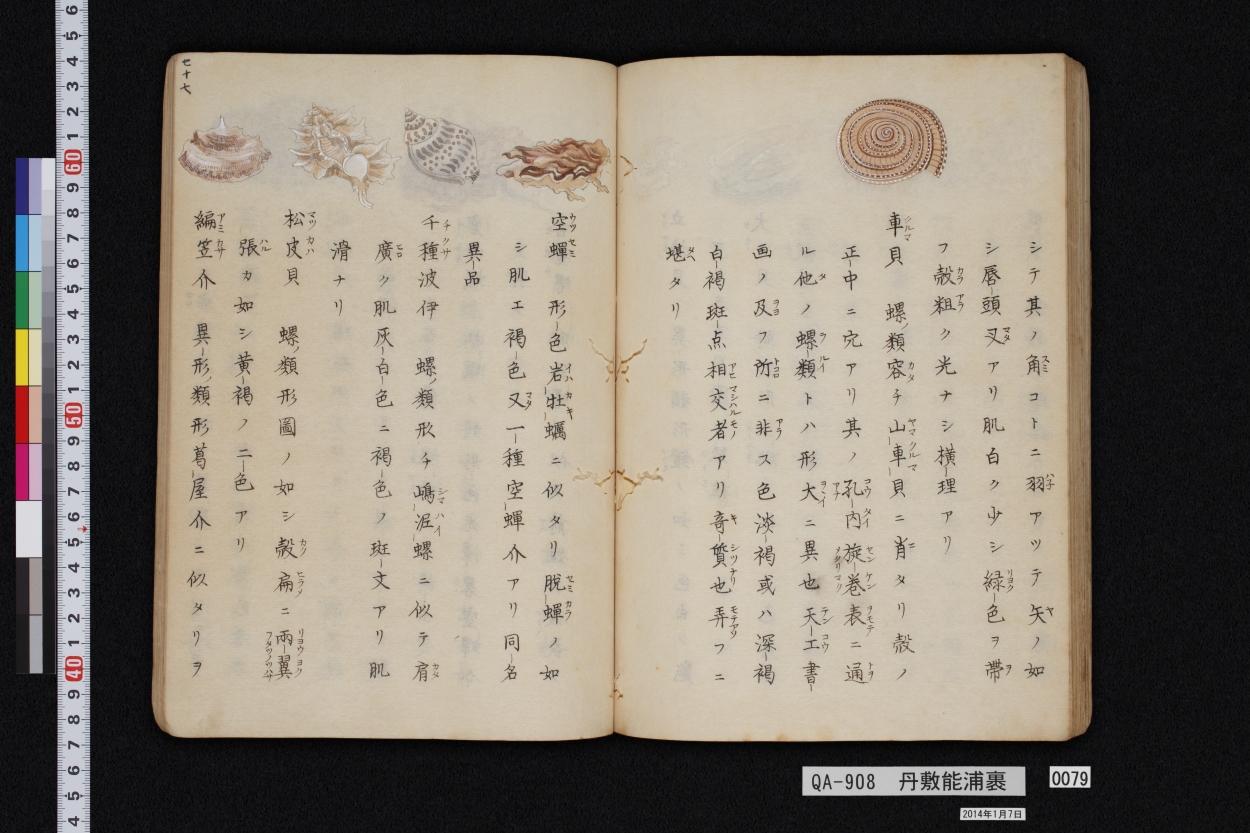 シテ其ノ角コトニ羽アツテ矢ノ如
シ唇頭叉アリ肌白ク少シ緑色ヲ帶
フ殻粗ク光ナシ横理アリ
車貝 螺ノ類容チ山車貝ニ肖タリ殻ノ
正中ニ穴アリ其ノ孔内旋巻表ニ通
ル他ノ螺類トハ形大ニ異也天工書
画ノ及フ所ニ非ス色淡褐或ハ深褐
白褐斑点相交者アリ奇質也弄フニ
堪タリ
空蟬 形色岩牡蠣ニ似タリ脱蟬ノ如
シ肌エ褐色又一種空蟬介アリ同名
異品
千種波伊 螺ノ類形チ嶋泥螺ニ似テ肩
廣ク肌灰白色ニ褐色ノ斑文アリ肌
滑ナリ
松皮貝 螺ノ類形圖ノ如シ殻扁ニ兩翼
張カ如シ黄褐ノ二色アリ
編笠介 異形ノ類形葛屋介ニ似タリヲ
七十七
QA-908 丹敷能浦裹
0079
2014年1月7日